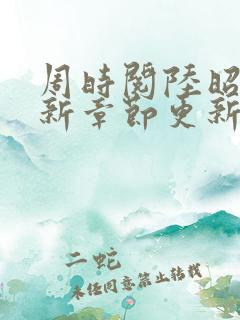 周时阅陆昭
新章节更新
二蛇
未经同意禁止转载